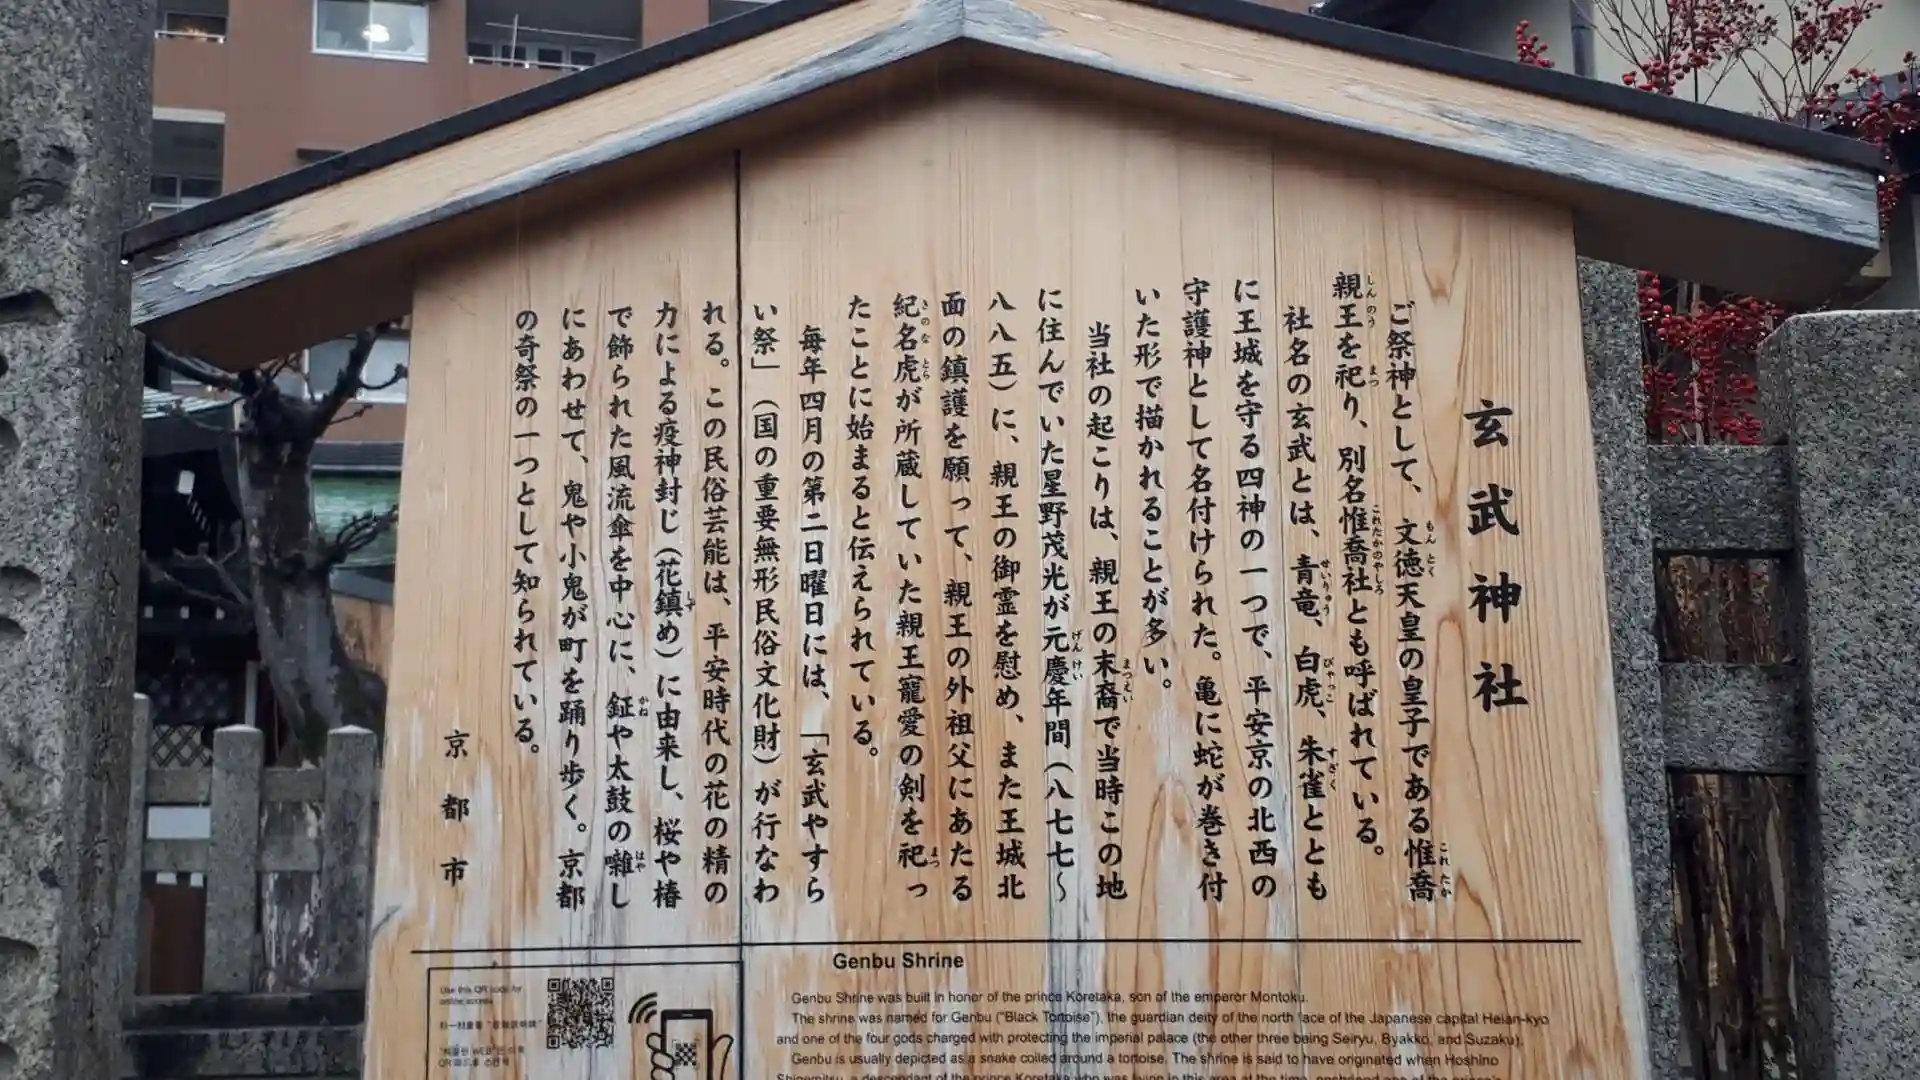 玄武神社
ご祭神として、文徳天皇の皇子である惟喬
親王を祀り、別名惟喬社とも呼ばれている。
社名の玄武とは、青竜、白虎、朱雀ととも
に王城を守る四神の一つで、平安京の北西の
守護神として名付けられた。亀に蛇が巻き付
いた形で描かれることが多い。
当社の起こりは、親王の末裔で当時この地
に住んでいた星野茂光が元慶年間（八七七〜
八八五）に、親王の御霊を慰め、また王城北
面の鎮護を願って、親王の外祖父にあたる
紀名虎が所蔵していた親王寵愛の剣を祀っ
たことに始まると伝えられている。
毎年四月の第二日曜日には、「玄武やすら
い祭」（国の重要無形民俗文化財）が行なわ
れる。この民俗芸能は、平安時代の花の精の
力による疫神封じ（花鎮め）に由来し、桜や椿
で飾られた風流傘を中心に、鉦や太鼓の囃し
にあわせて、鬼や小鬼が町を踊り歩く。京都
の奇祭の一つとして知られている。
京都市
Genbu Shrine
Genbu Shrine was built in honor of the prince Koretaka, son of the emperor Montoku.
The shrine was named for Genbu ("Black Tortoise"), the guardian deity of the north face of the Japanese capital Heian-kyo
and one of the four gods charged with protecting the imperial palace (the other three being Seiryu, Byakko, and Suzaku).
Genbu is usually depicted as a snake coiled around a tortoise. The shrine is said to have originated when Hoshino
Shigemitsu, a descendant of the prince Koretaka who was living in this area at the time, enshrined one of the prince's
Use this QR code for
online access.